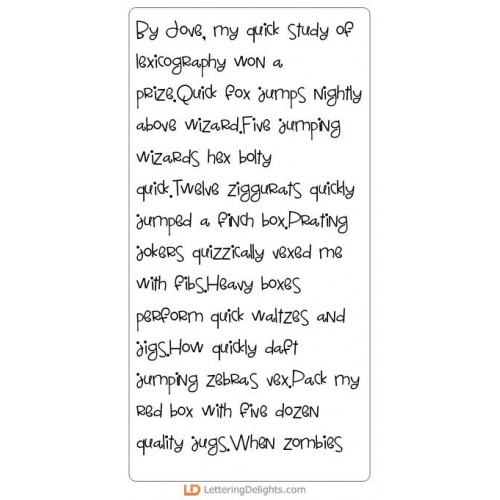 By Jove, my quick study of
lexicography won a
prize.Quick fox jumps nightly
above wizard.Five jumping
wizards hex bolty
quick.Twelve ziggurats quickly
jumped a finch box.Prating
jokers quizzically vexed me
with fibs.Heavy boxes
perform quick waltzes and
jigs.How quickly daft
jumping zebras vex.Pack my
red box with five dozen
quality jugs.When zombies
LD LetteringDelights.com